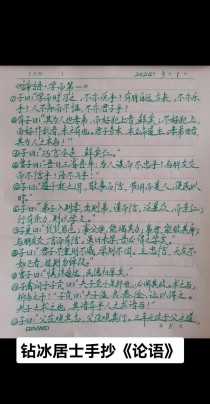 2024年3月1日
《论语·学而第一》
①子曰:“学而时习之,不亦说乎?有朋自远方来,不亦乐
乎?人不知而不愠,不亦君子乎?
②有子曰:“其为人也孝弟,而好犯上者,鲜矣;不好犯上,
而好作乱者,未之有也。君子务本,本立而道生。孝弟也者,
其为人之本与!”
③子曰:“巧言令色,鲜矣仁。”
④曾子曰:“吾日三省吾身:为人谋而不忠乎?与朋友交
而不信乎?传不习乎?”
⑤子曰:“道千乘之国,敬事而信,节用而爱人,使民以
时。”
⑥子曰:“弟子入则孝,出则弟,谨而信,泛爱众,而亲仁;
行有余力,则以学文。”
⑦子夏曰:“贤贤易色;事父母,能竭其力;事君,能致其身;
与朋友交,言而有信。虽曰未学,吾必谓之学矣。”
⑧子曰:“君子不重则不威,学则不固。主忠信,无友不
如己者,过则勿惮改。”
⑨曾子曰:“慎终追远,民德归厚矣。”
⑩子禽问于子贡曰:“夫子至于是邦也,必闻其政,求之与,
抑与之与?”子贡曰:“夫子温、良、恭、俭、让以得之。
夫子之求之也,其诸异乎人之求之与!”
⑪子曰:“父在观其志,父没观其行,三年无改于父之道,
钻冰居士手抄《论语》
QINWEI